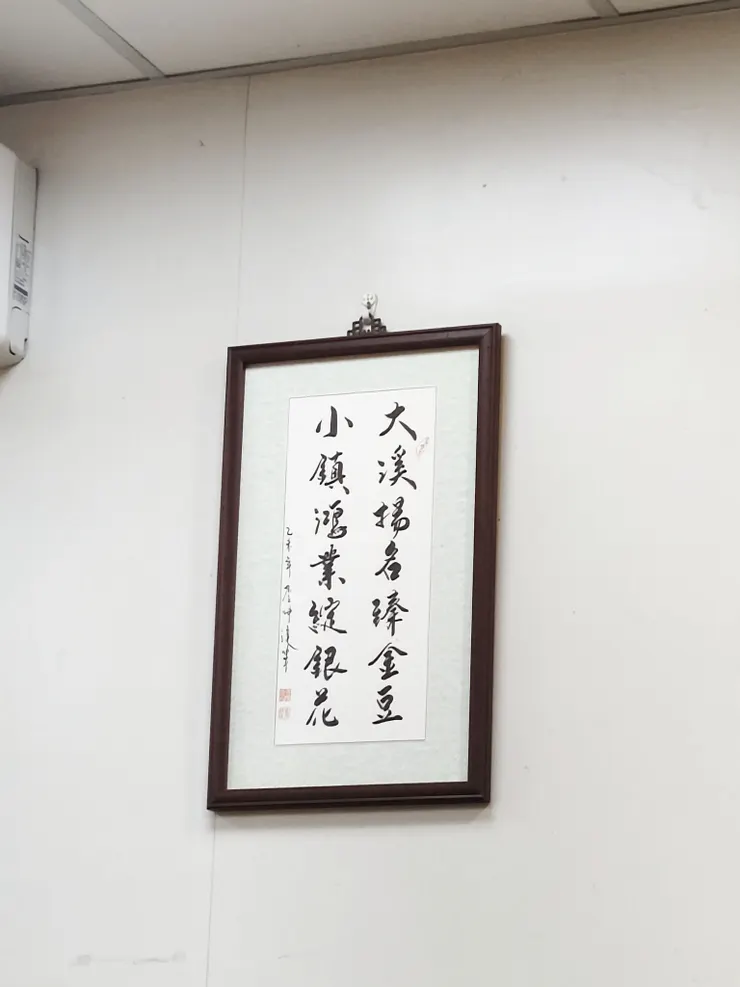 大溪揚名臻金豆
小鎮鴻業綻銀花
乙未年